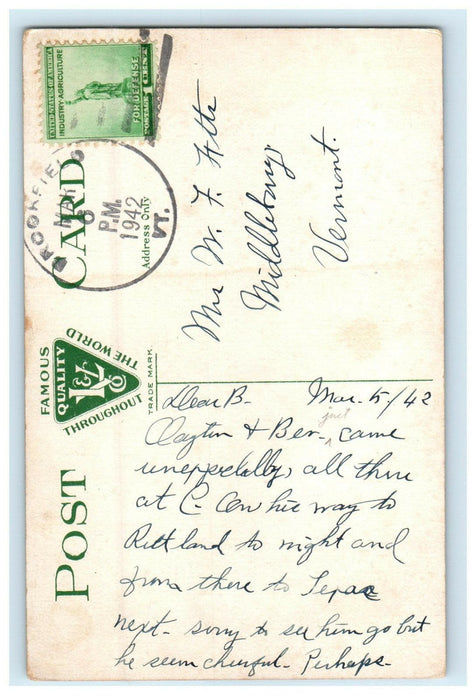 UNITED STATES OF AMERICA
INDUSTRY-AGRICULTURE
FOR DEFENSE
POSTAGE 1 CENT
MAR 6
P.M.
1942
VT.
POST CARD
Address Only
FAMOUS
QUALITY
THROUGHOUT
THE WORLD
TRADE MARK
Mrs W. F.
Middlebury
Vermont.
Dear B- Mar. 5/42
Clayton & Ben- just came
unexpectedly, all three
at C- On his way to
Rutland to night and
from there to Texas
next- sorry to see him go but
he seem cheerful- Perhaps-